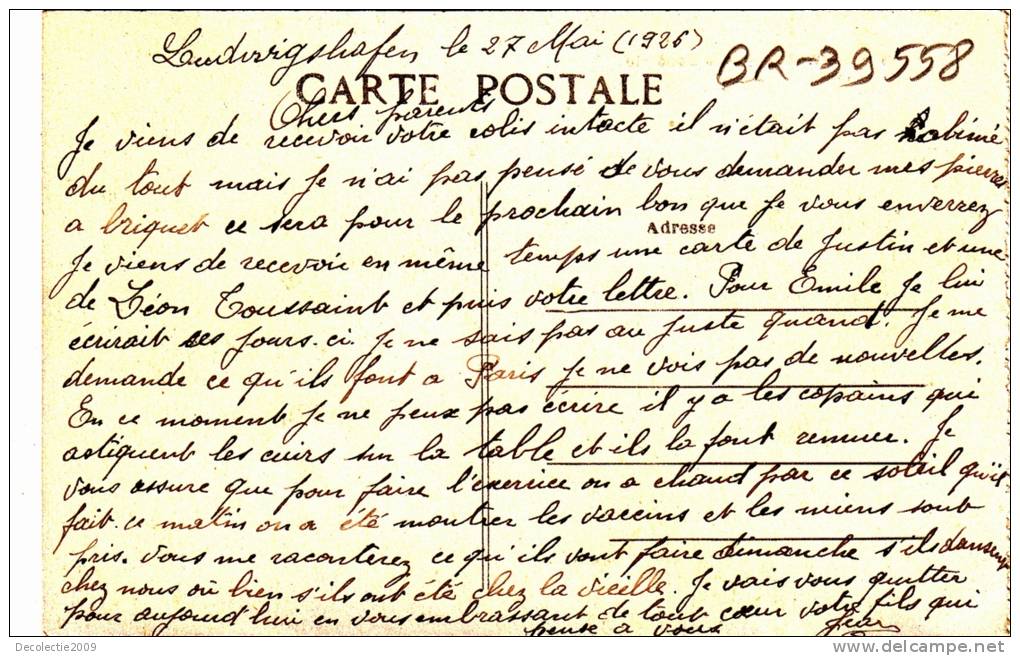 Ludwigshafen le 27 Mai (1926)
BR-39558
CARTE POSTALE
Chers parents
Je viens de recevoir votre colis intacte il n'était pas abimé
du tout mais je n'ai pas pensé de vous demander mes pierres
a briquet ce sera pour le prochain bon que je vous enverrez
Adresse
Je viens de recevoir en même temps une carte de Justin et une
de Léon Toussaint et puis votre lettre. Pour Emile je lui
écrirait ses jours-ci. Je ne sais pas au juste quand. Je me
demande ce qu'ils font a Paris je ne vois pas de nouvelles.
En ce moment je ne peux pas écrire il y a les copains qui
astiquent les cuirs sur la table et ils la font remuer. Je
vous assure que pour faire l'exercice on a chaud par ce soleil qu'il
fait. ce matin on a été montrer les vaccins et les miens sont
pris. Vous me raconterez ce qu'ils vont faire dimanche s'ils dansent
chez nous où bien s'ils ont été chez la vieille. Je vais vous quitter
pour aujourd'hui en vous embrassant de tout cœur votre fils qui
pense a vous Jean
Decolectie2009
delcampe.net